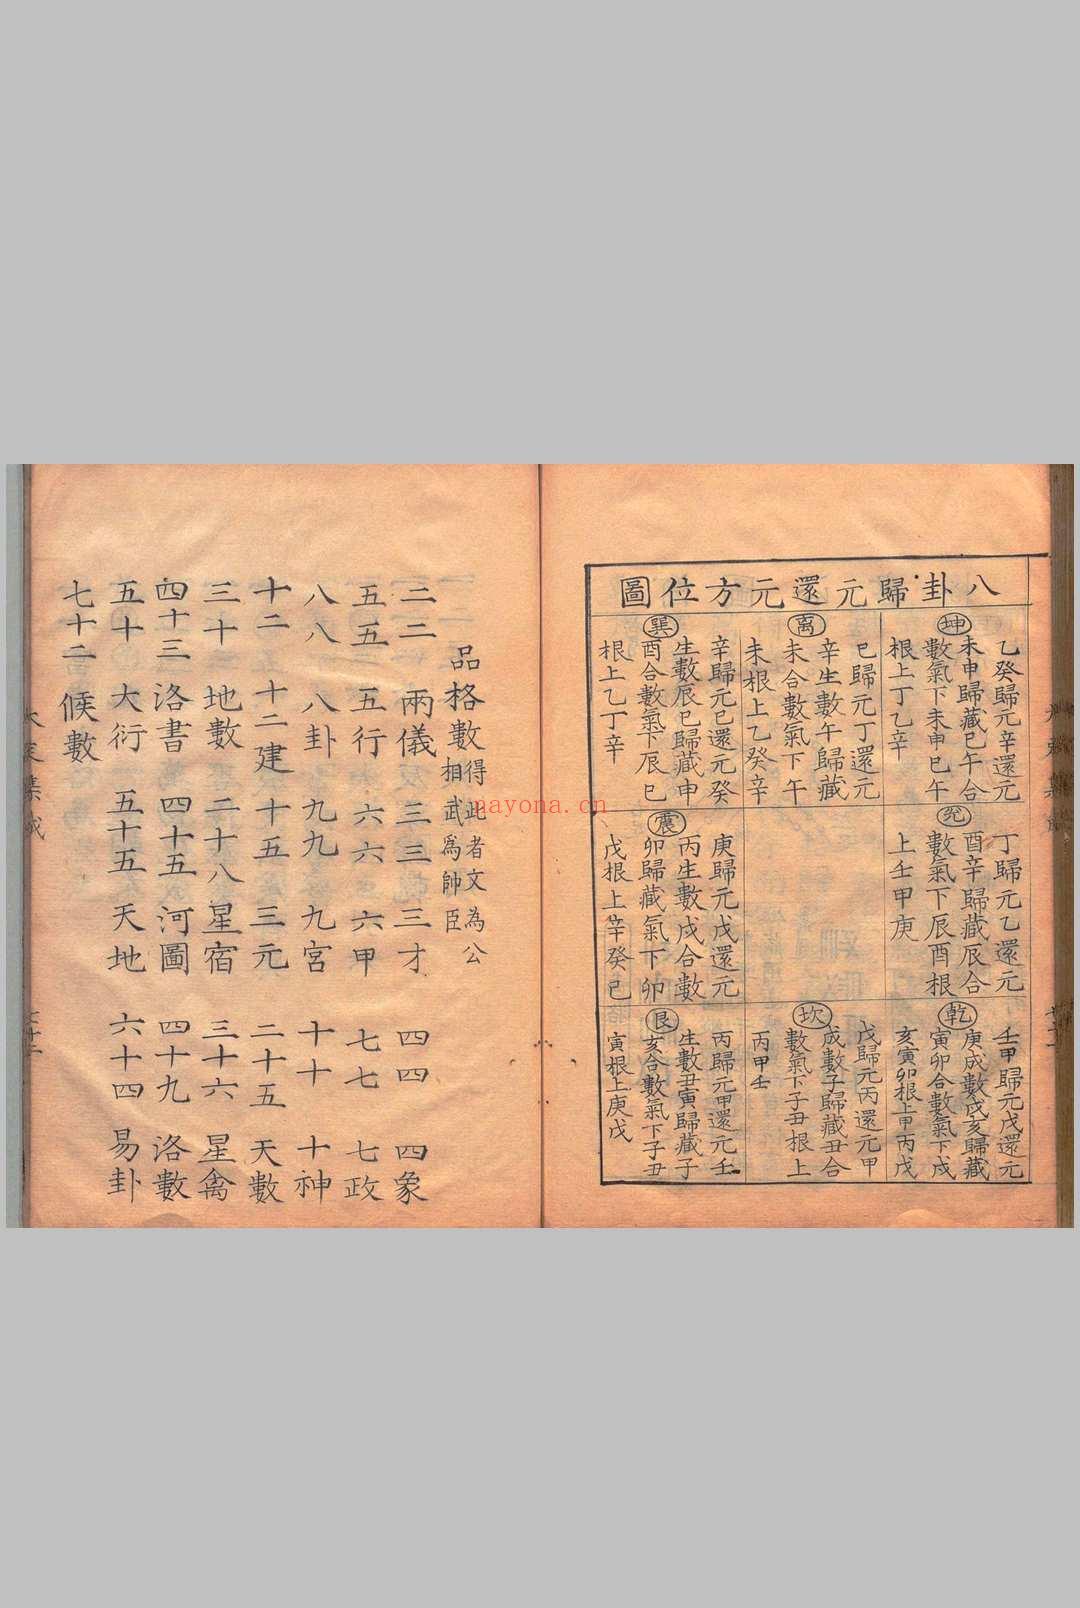 八卦歸元還元方位圖
坤
乙癸歸元辛還元
未申歸藏巳午合
數氣下未申巳午
根上丁乙辛
离
巳歸元丁還元
辛生數午歸藏
未合數氣下午
未根上乙癸辛
巽
辛歸元巳還元癸
生數辰巳歸藏申
酉合數氣下辰巳
根上乙丁辛
兊
丁歸元乙還元
酉辛歸藏辰合
數氣下辰酉根
上壬甲庚
震
庚歸元戊還元
丙生數戌合數
卯歸藏氣下卯
戊根上辛癸巳
乾
壬甲歸元戊還元
庚成數戌亥歸藏
寅卯合數氣下戌
亥寅卯根上甲丙戊
坎
戊歸元丙還元甲
成數子歸藏丑合
數氣下子丑根上
丙甲壬
艮
丙歸元甲還元壬
生數丑寅歸藏子
亥合數氣下子丑
寅根上庚戊
品格數得此者文為公
相武爲帥臣
二二 兩儀 三三 三才 四四 四象
五五 五行 六六 六甲 七七 七政
八八 八卦 九九 九宮 十十 十神
十二 十二建 十五 三元 二十五 天數
三十 地數 二十八 星宿 三十六 星禽
四十三 洛書 四十五 河圖 四十九 洛數
五十 大衍 五十五 天地 六十四 易卦
七十二 候數
nayona.cn